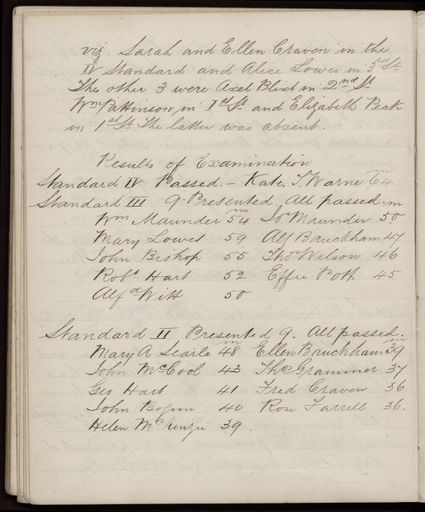 viz. Sarah and Ellen Craven in the
IV Standard and Alice Lowes in 3rd St.
The other 3 were Axel Blixt in 2nd St.
Wm Pattinson, in 1st St. and Elizabeth Beck
in 1st St. The latter was absent.
Results of Examination
Standard IV Passed. - Kate. T. Warne 64
Standard III 9 Presented, All passed.
Wm Maunder 54 Jos Maunder 50
Mary Lowes 59 Alf Bauckham 47
John Bishop 55 Thos Wilson 46
Robt Hart 52 Effie Both 45
Alfd Witt 50
Standard II Presented 9. All passed.
Mary A Searle 48 Ellen Bauckham 39
John McCool 43 Thos Grammer 37
Geo Hart 41 Fred Craven 36
John 40 Rose Farrell 36.
Helen McKenzie 39.